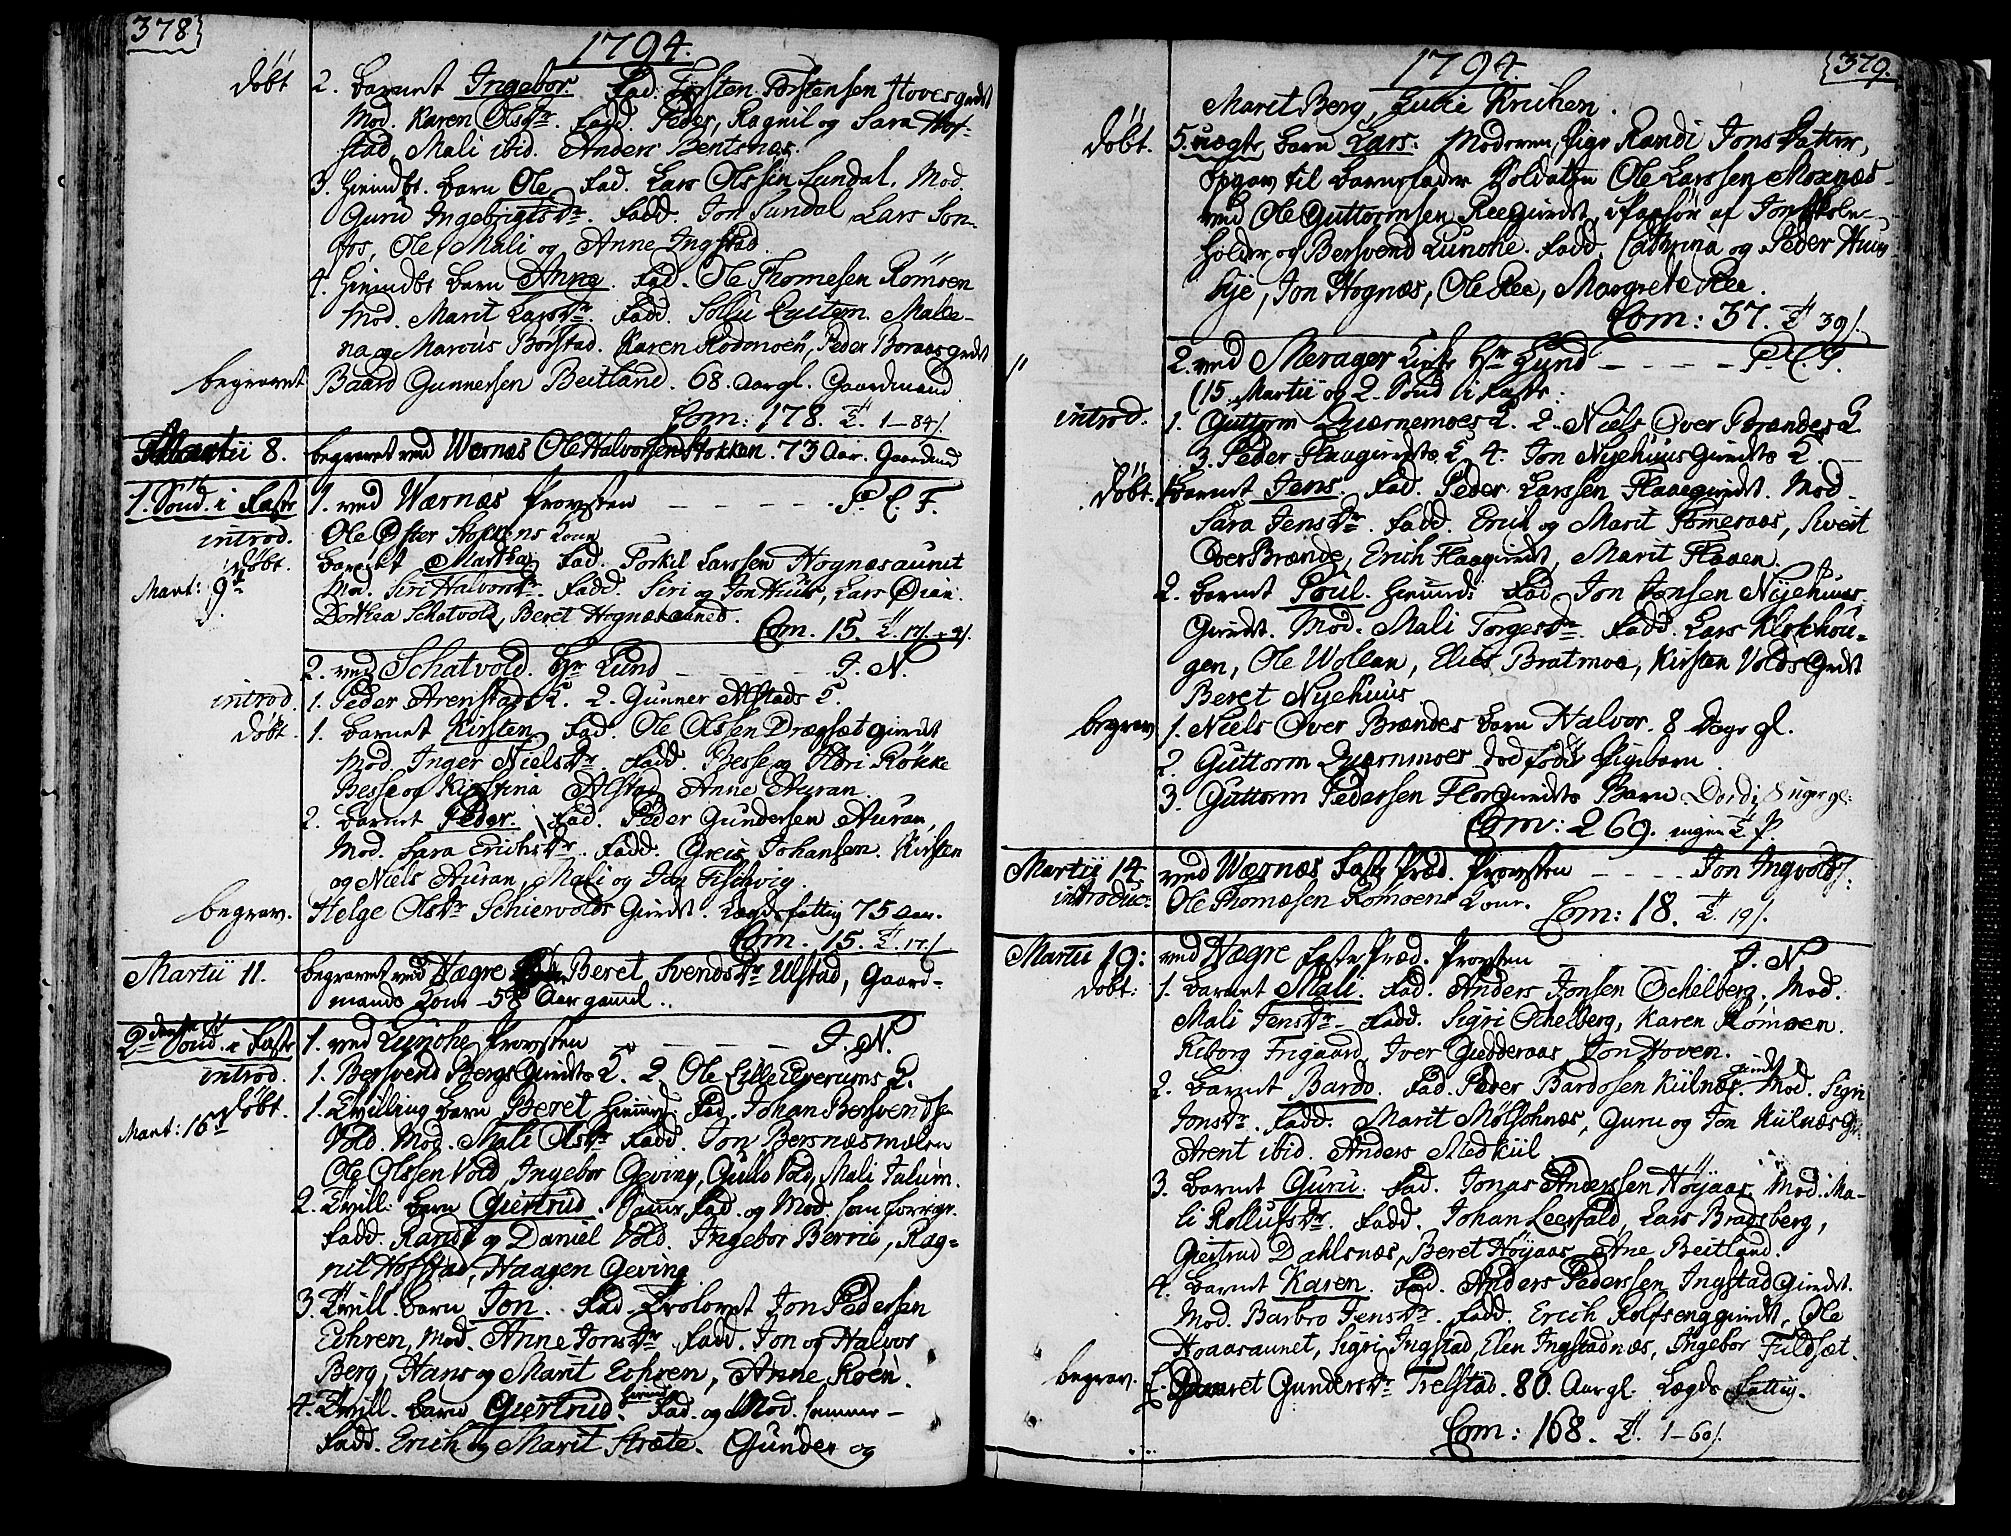 378
1794.
døbt 2. barnet Ingebor. Fad. Torsten Torstensen Hovesgrdet
Mod. Karen Olsdr. Fadd. Peder, Ragnil og Sara Hof-
stad, Mali ibid. Anders Bentsnæs.
3. hiemdbt. barn Ole, Fad. Lars Olssen Sundal. Mod.
Guru Ingebrigtsdr. Fadd. Jon Sundal, Lars
Ole, Mali og Anne Ingstad.
4. hiemdbt barn Anne. Fad. Ole Thomesen Römoen
Mod. Marit Larsdr. Fadd. Male-
na og Marcus Börstad. Karen Rodmoen, Peder Boraasgrdet
begravet Baard Gunnersen Beitland. 68. Aar gl. Gaardmand
Com: 178. 1-84/.
Martii 8. begravet ved Wærnæs Ole Halvorsen Stokkan. 73 Aar. Gaardmd
1. Sönd. i Faste 1. ved Wærnæs Provsten - - - P. C. F.
introd. Ole Øfter Stokkens Kone
døbt. barnet Martha. Fad. Torkil Larssen Hognæsaunet
Mart: 9de Mod. Siri Halvorsdr. Fadd. Siri og Jon Huus, Lars Öian.
Dorthea Schatvold, Beret Hognæsauned.
Com. 15.
2. ved Schatvold. Hr Lund - - - J. N.
introd. 1. Peder Arenstads K. 2. Gunner Alstads K.
døbt. 1. barnet Kirsten. Fad. Ole Olssen Drægsætgirdet
Mod. Inger Nielsdr. Fadd. Besse og Ildri Rökke
Besse og Kirstina Alstad, Anne Auran.
2. barnet Peder. Fad. Peder Gundersen Auran,
Mod. Sara Erichsdr. Fadd. Greis Johansen. Kirsten
og Niels Auran, Mali og Fischvig.
begrav. Helge Olsdr Schiervolds Girdet. Lægdsfattig 75 Aar.
Com. 15. 17/.
Martii 11. begravet ved Hægre Beret Svendsdr Ulstad, Gaard-
mands Kone - 58 Aar gaml.
2den Sönd. i Faste 1. ved Lunche Provsten - - - J. N.
introd. 1. Bersvend Bergs Girdets K. 2. Ole Lille K.
døbt. 1. Tvilling barn Beret hiemd. Fad. Johan Bersvendse
Mart: 16de Vold. Mod. Mali Olsdr Fadd. Jon Bersnæsmælen
Ole Olssen Vold, Ingebor Geving, Guru Vold, Mali Salum.
2. Tvill: barn Giertrud. Samme Fad. og Mod. som forrige.
Fadd. Randi og Daniel Vold. Ingebor Berrie, Rag-
nil Hofstad, Haagen Geving
3. Tvill. barn Jon. Fad. Trolovet Jon Pedersen
Eohren, Mod. Anne Jonsdr Fadd. Jon og Halvor
Berg, Hans og Marit Eohren, Anne Roen.
4. Tvill. barn Giertrud. hiemd. Fad. og Mod. samme -
Fadd. Erich og Marit Stræte. Gunder og
379.
1794.
Marit Berg, Krichen.
døbt. 5. uægte barn Lars. Moderen Pige Randi Jons Datter,
opgav til barnefader Soldaten Ole Larssen Moxnæs -
ved Ole Guttormsen Reegirdet, Paahör af Jon Skole-
holder og Bersvend Lunche. Fadd. Cathrina og Peder Huus
bye, Jon Hognæs, Ole Ree, Margrete Ree.
Com: 37. 39/.
2. ved Merager Kirke Hr Lund - - - P. C. F.
(15 Martii og 2. Sönd i Faste:
introd. 1. Guttorm Quærnemoes K. 2. Niels Over Brændes K.
3. Peder Flaagirdets K. 4. Jon Nyehuus Girdets K.
døbt. 1. barnet Jens. Fad. Peder Larssen Flaaegirdet. Mod -
Sara Jensdr. Fadd. Erich og Marit Tömeraas, Sveit
Over Brænde, Erich Flaagirdet, Marit Flaaen.
2. barnet Poul. hiemd: Fad Jon Jonsen Nyehuus
Girdet. Mod. Mali Torgersdr. Fadd. Lars Klokhou-
gen, Ole Wollan, Elies Bratmoe, Kirsten Volds Grdet
Beret Nyehuus
begrav 1. Niels Over Brændes barn Halvor. 8 Dage gl.
2. Guttorm Quærnmoes dödföde Pigebarn
3. Guttorm Pedersen Flor Girdets Barn Dordi, 8 uger gl:
Com: 269. ingen
Martii 14. ved Wærnæs Faste Præd. Provsten - - - Jon Ingvolds/:
introduc: Ole Thomæsen Römoens Kone. Com: 18. 19/.
Martii 19: ved Hægre Faste Præd. Provsten - - J. N
døbt: 1. barnet Mali. Fad. Anders Jonsen Ochelberg. Mod.
Mali Jensdr - Fadd. Sigri Ochelberg, Karen Römoen.
Kiborg Frigaard, Iver Gudderaas, Jon Hoven.
2. barnet Bardo. Fad. Peder Bardosen Kiilnæs girdet. Mod. Sigri
Jonsdr. Fadd. Marit Mölsohnæs, Guru og Jon Kiilnæs Gr:
Arent ibid. Anders Medkiil
3. barnet Guru. Fad. Jonas Anderssen Höyaas. Mod. Ma-
li Rollufsdr. Fadd. Johan Leerfald, Lars Bradsberg,
Giertrud Dahlsnæs, Beret Höyaas, Ane Beitland.
4. barnet Karen. Fad. Anders Pederssen Ingstad Girdet.
Mod. Barbro Jensdr. Fadd. Erich Rolfsenggirdet, Ole
Hoaasaunet, Sigri Ingstad, Elen Ingstadnæs, Ingebor Fuldsæt.
begrav. 1. Gundersdr Trelstad. 80. Aar gl. Lægds fattig.
Com: 168. 1-60/.